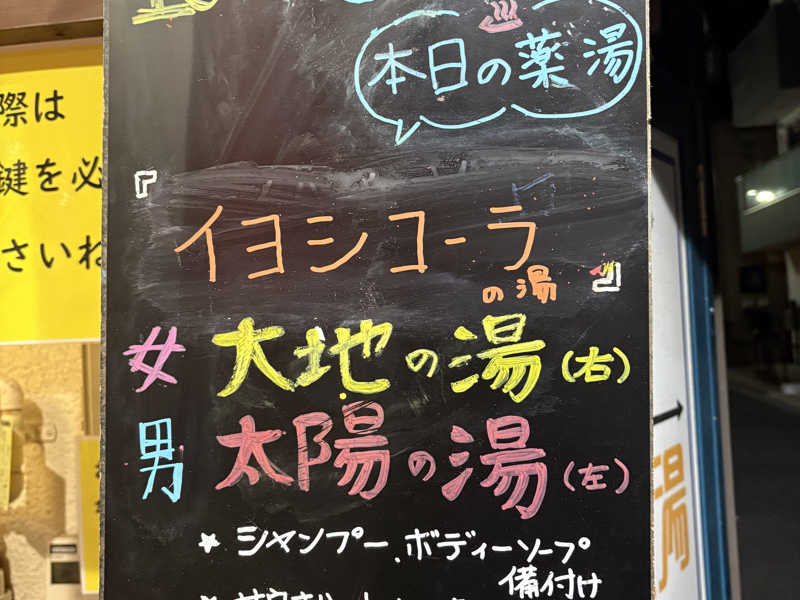 際は
鍵を必
さいね
本日の薬湯
『イヨシコーラ
の湯』
女 大地の湯(右)
男 太陽の湯(左)
★シャンプー、ボディーソープ
備付け
湯